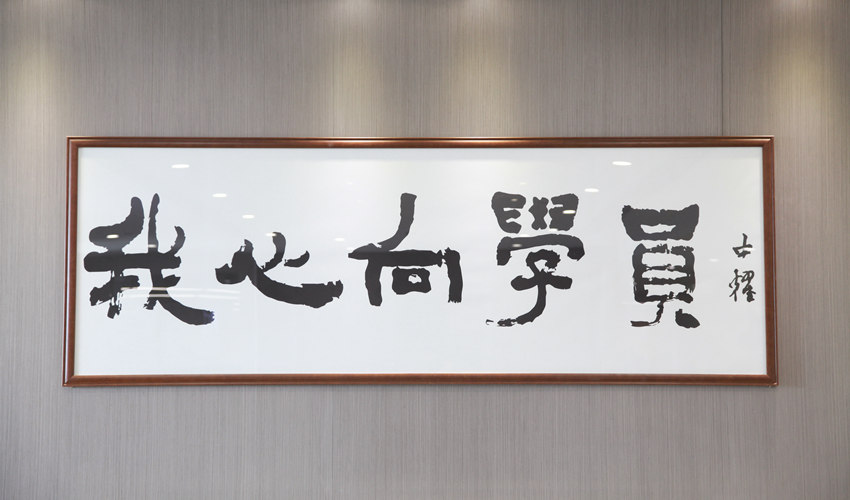 我心向學員
古耀